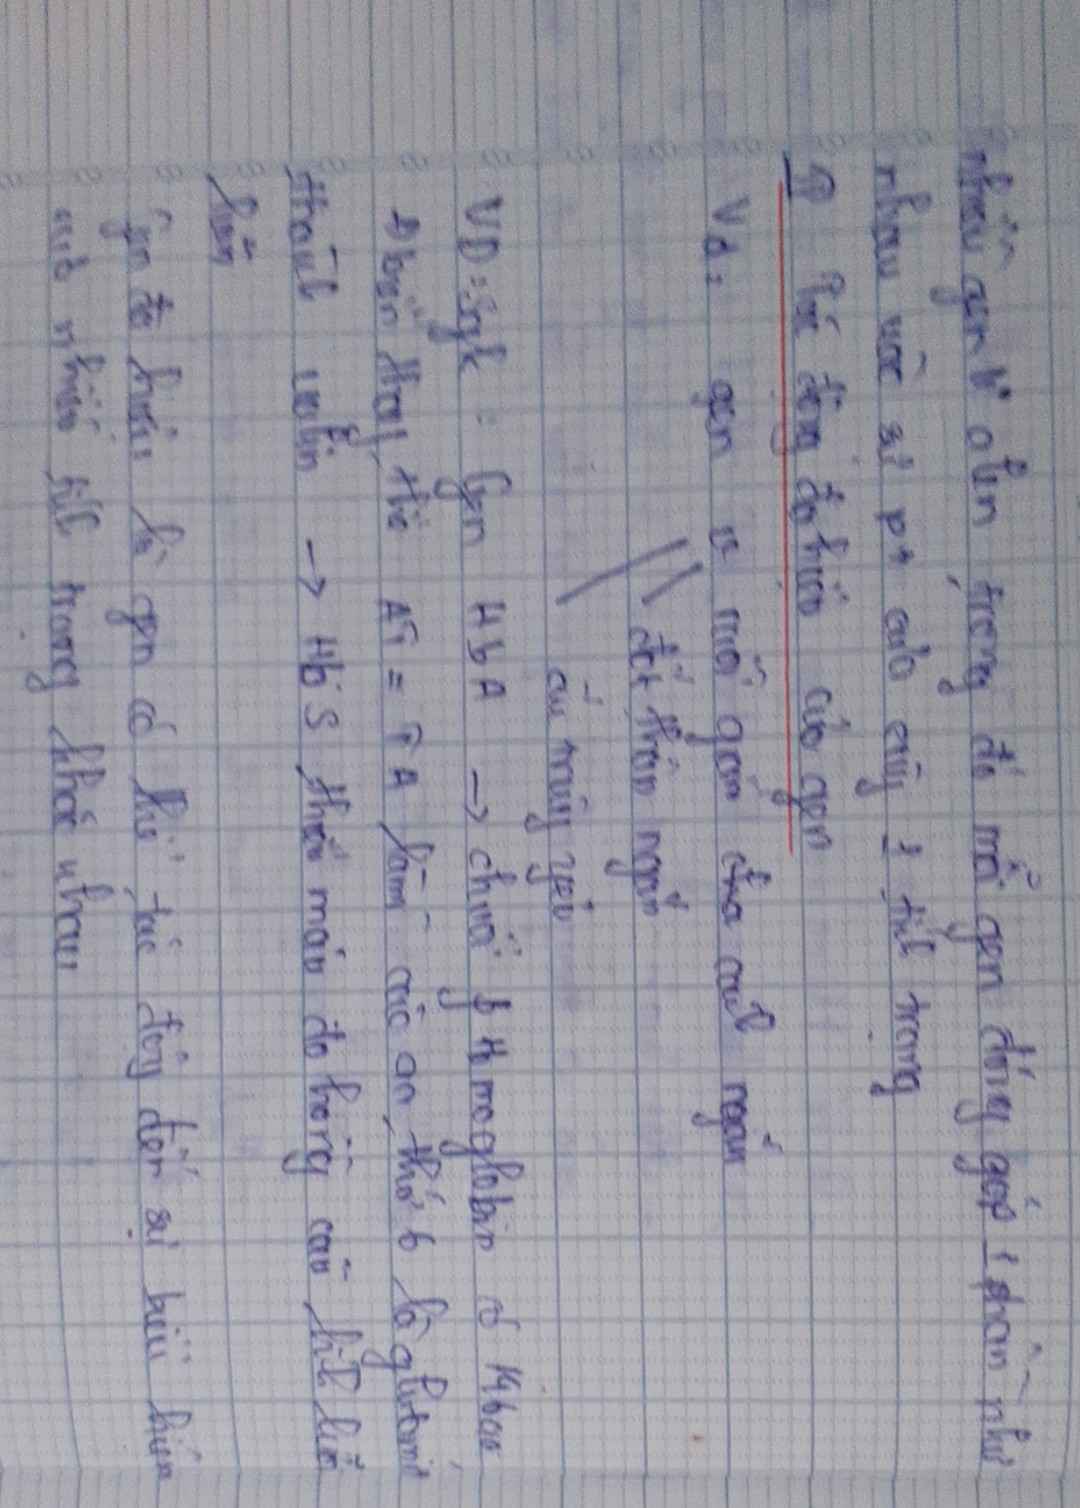 nhiều gen k alen trong đó mỗi gen đóng góp 1 phần như
nhau vào sự pt của cùng 1 tính trạng
II Tác động đa hiệu của gen
Vd: gen v ruồi giấm cho cánh ngắn
đốt thân ngắn
cứ máy yếu
VD: sgk: Gen HbA → chuỗi β Hmoglobin có 146aa
Đbiến thay thế AT = TA làm cho aa thứ 6 là glutamic
thành valin → HbS thiếu máu do hồng cầu hình liềm
liền
Gen đa hiệu là gen có kn tác động đến sự biểu hiện
của nhiều tính trạng khác nhau